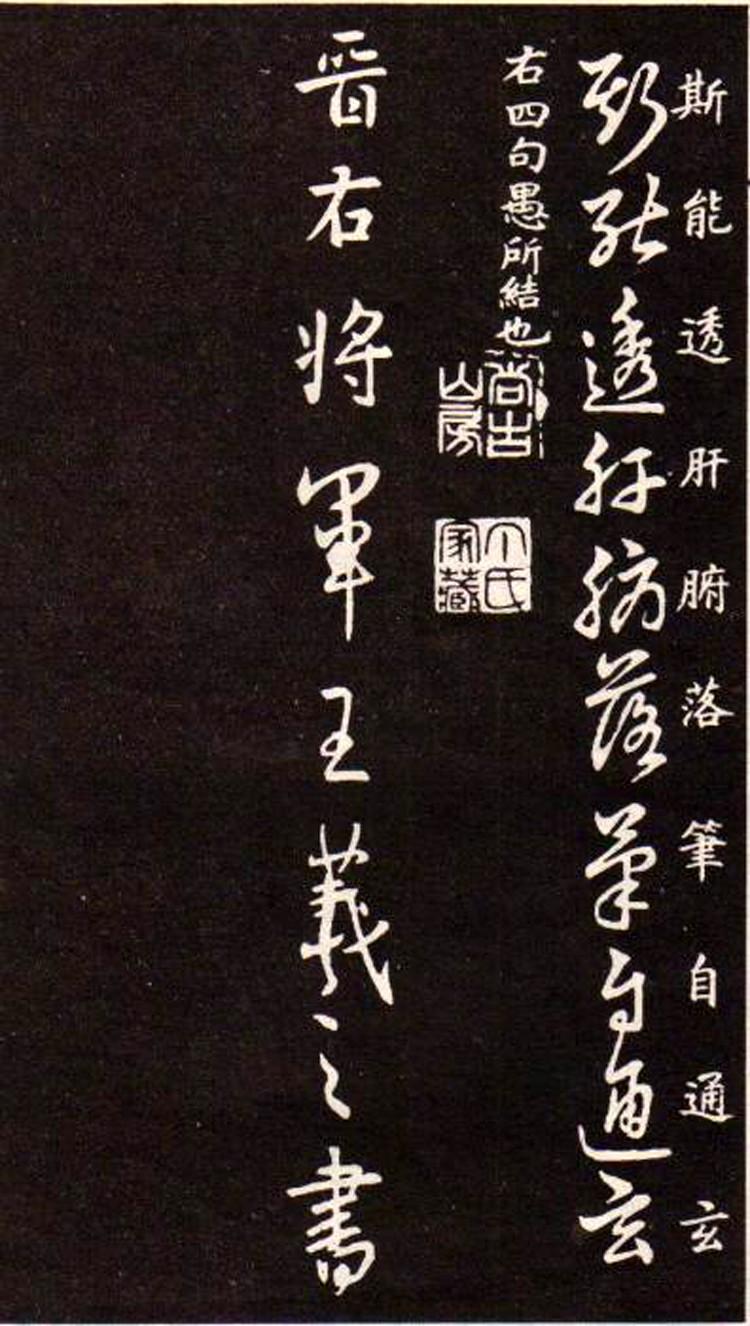 斯能透肝腑落筆自通玄
斯能透肝腑落筆自通玄
右四句愚所結也
尚古山房
氏家藏
晉右將軍王羲之書